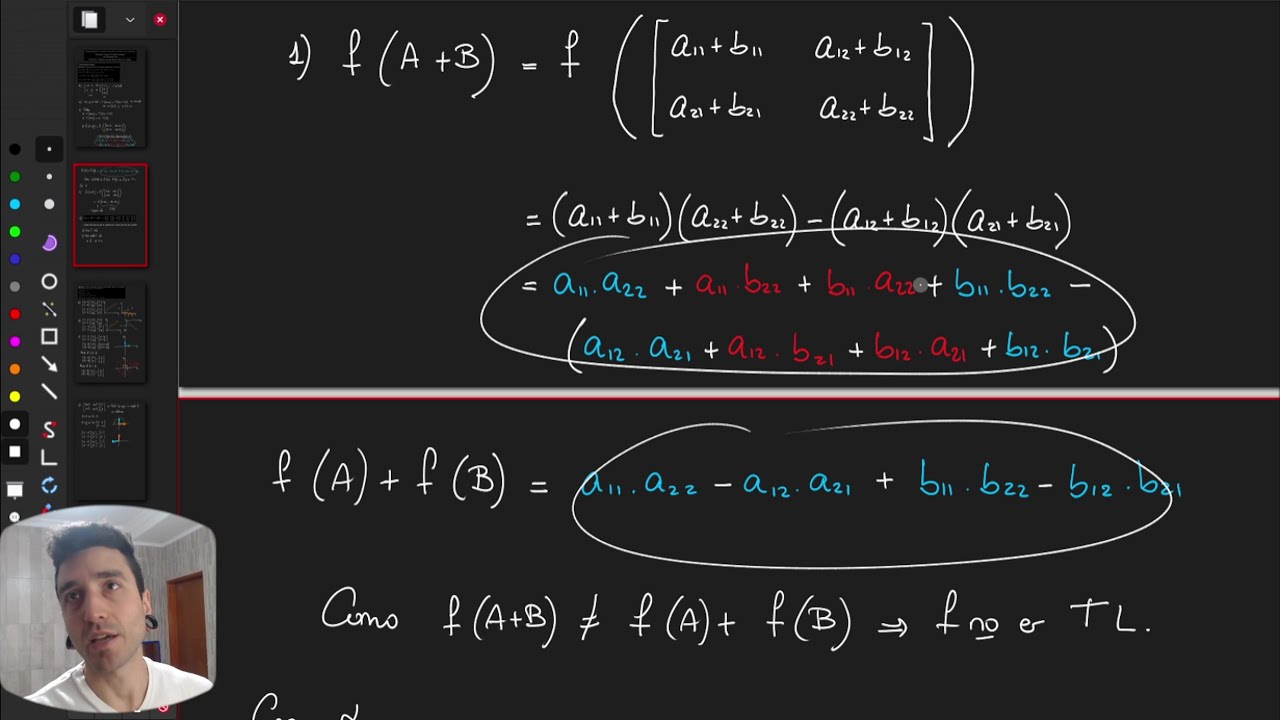 1) f (A+B) = f ([a₁₁+b₁₁ a₁₂+b₁₂
a₂₁+b₂₁ a₂₂+b₂₂])
= (a₁₁+b₁₁)(a₂₂+b₂₂) – (a₁₂+b₁₂)(a₂₁+b₂₁)
= a₁₁.a₂₂ + a₁₁.b₂₂ + b₁₁.a₂₂ + b₁₁.b₂₂ –
(a₁₂.a₂₁ + a₁₂.b₂₁ + b₁₂.a₂₁ + b₁₂.b₂₁)
f (A) + f (B) = a₁₁.a₂₂ – a₁₂.a₂₁ + b₁₁.b₂₂ – b₁₂.b₂₁
Como f (A+B) ≠ f (A) + f (B) ⇒ f no es TL.